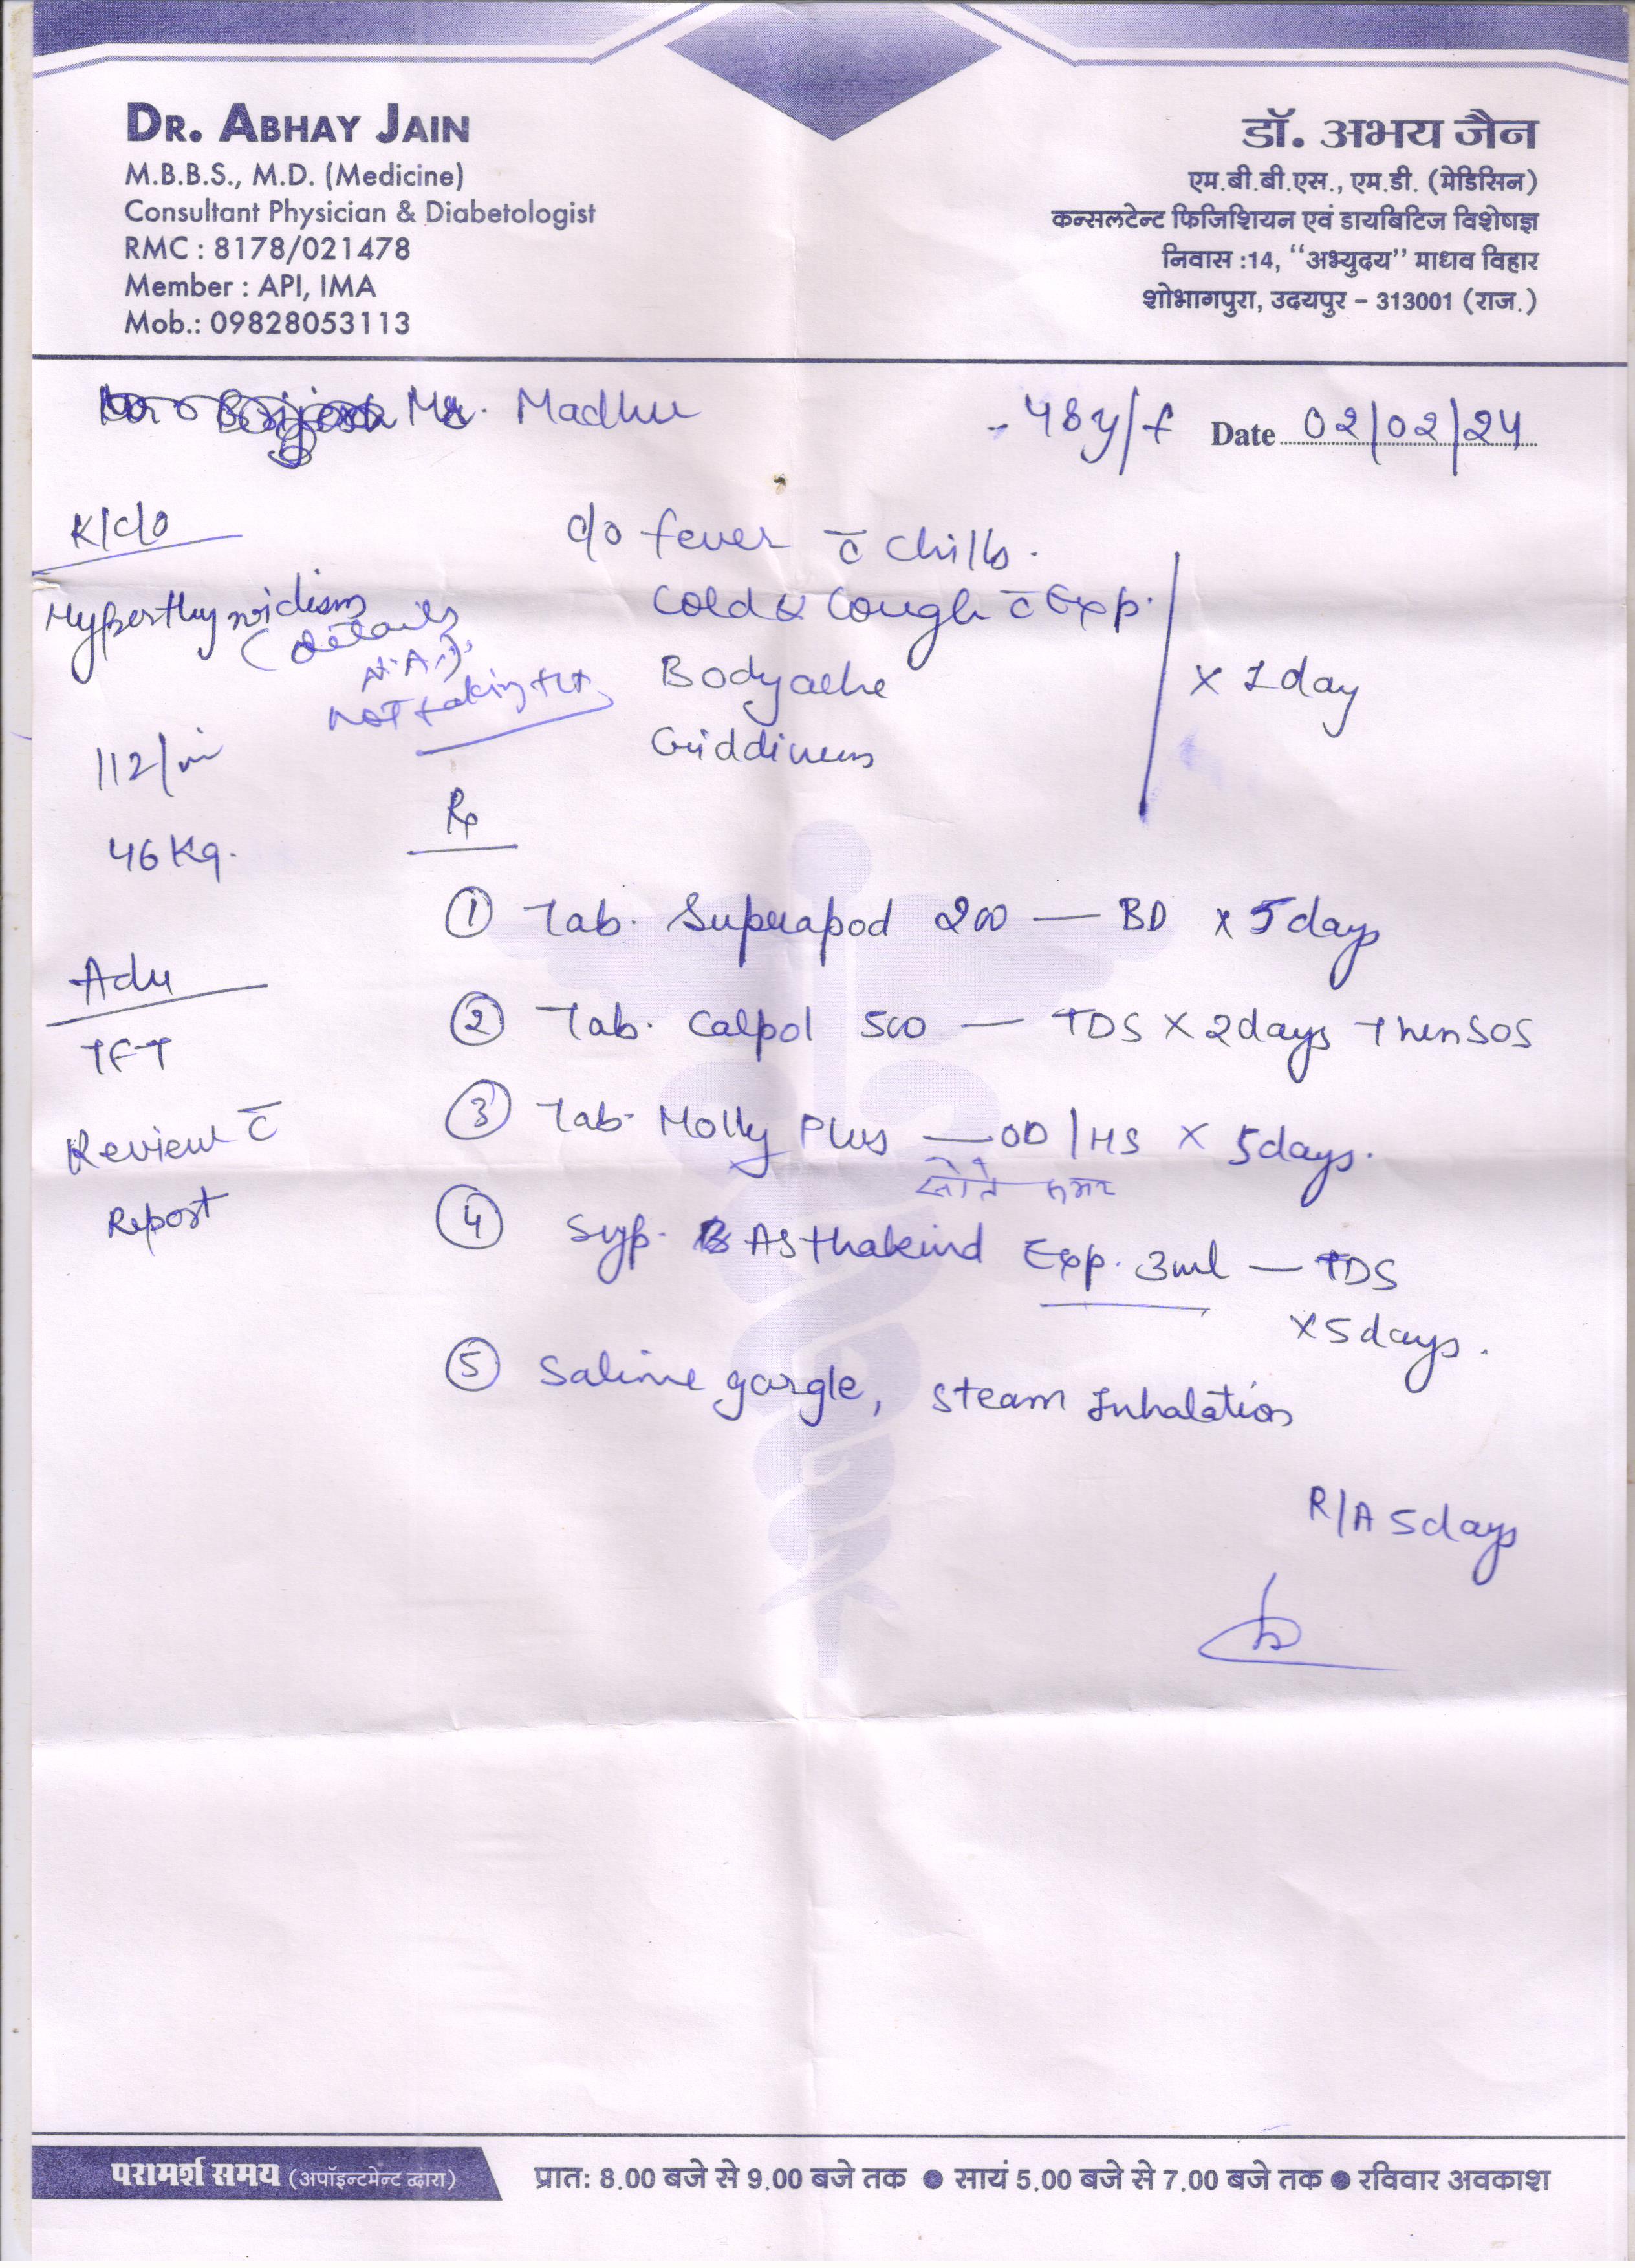 DR. ABHAY JAIN
M.B.B.S., M.D. (Medicine)
Consultant Physician & Diabetologist
RMC : 8178/021478
Member : API, IMA
Mob.: 09828053113
डॉ. अभय जैन
एम.बी.बी.एस., एम.डी. (मेडिसिन)
कन्सलटेन्ट फिजिशियन एवं डायबिटिज विशेषज्ञ
निवास :14, "अभ्युदय" माधव विहार
शोभागपुरा, उदयपुर – 313001 (राज.)
Madhu 48y/f Date 02/02/24
K/c/o
Hyperthyroidism
(details
N.A.).
NOT taking ttt
112/mi
46 Kg.
Adv
TFT
Review c̄
Report
c/o fever c̄ chills.
Cold & Cough c̄ Exp.
Bodyache
Giddiness
x 1 day
Rx
① Tab. Suprapod 200 — BD x 5 days
② Tab. Calpol 500 — TDS x 2 days Then SOS
③ Tab. Molly Plus — OD/HS x 5 days.
सोते समय
④ Syp. Asthakind Exp. 3ml — TDS
x 5 days.
⑤ Saline gargle, steam Inhalation
R/A 5 days
परामर्श समय (अपॉइन्टमेन्ट द्वारा) प्रातः 8.00 बजे से 9.00 बजे तक ● सायं 5.00 बजे से 7.00 बजे तक ● रविवार अवकाश